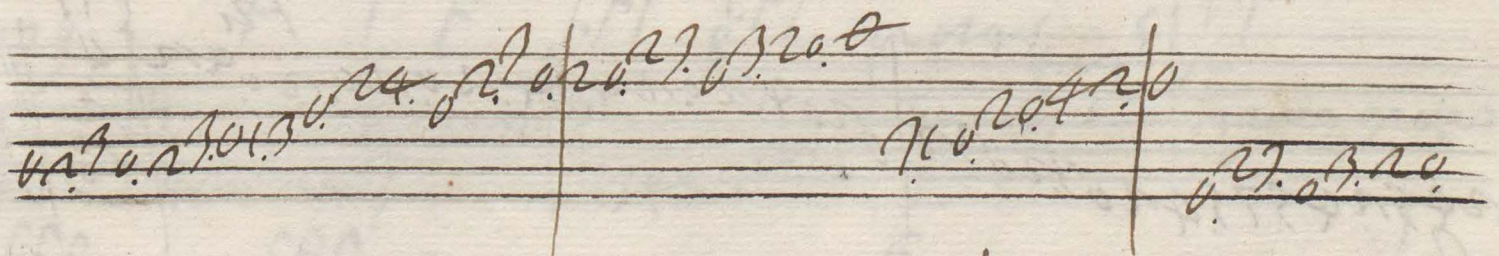 02.30.23.013 0.24.02.30.20.23.03.20.0 3.10.20.42.0 0.23.03.20.